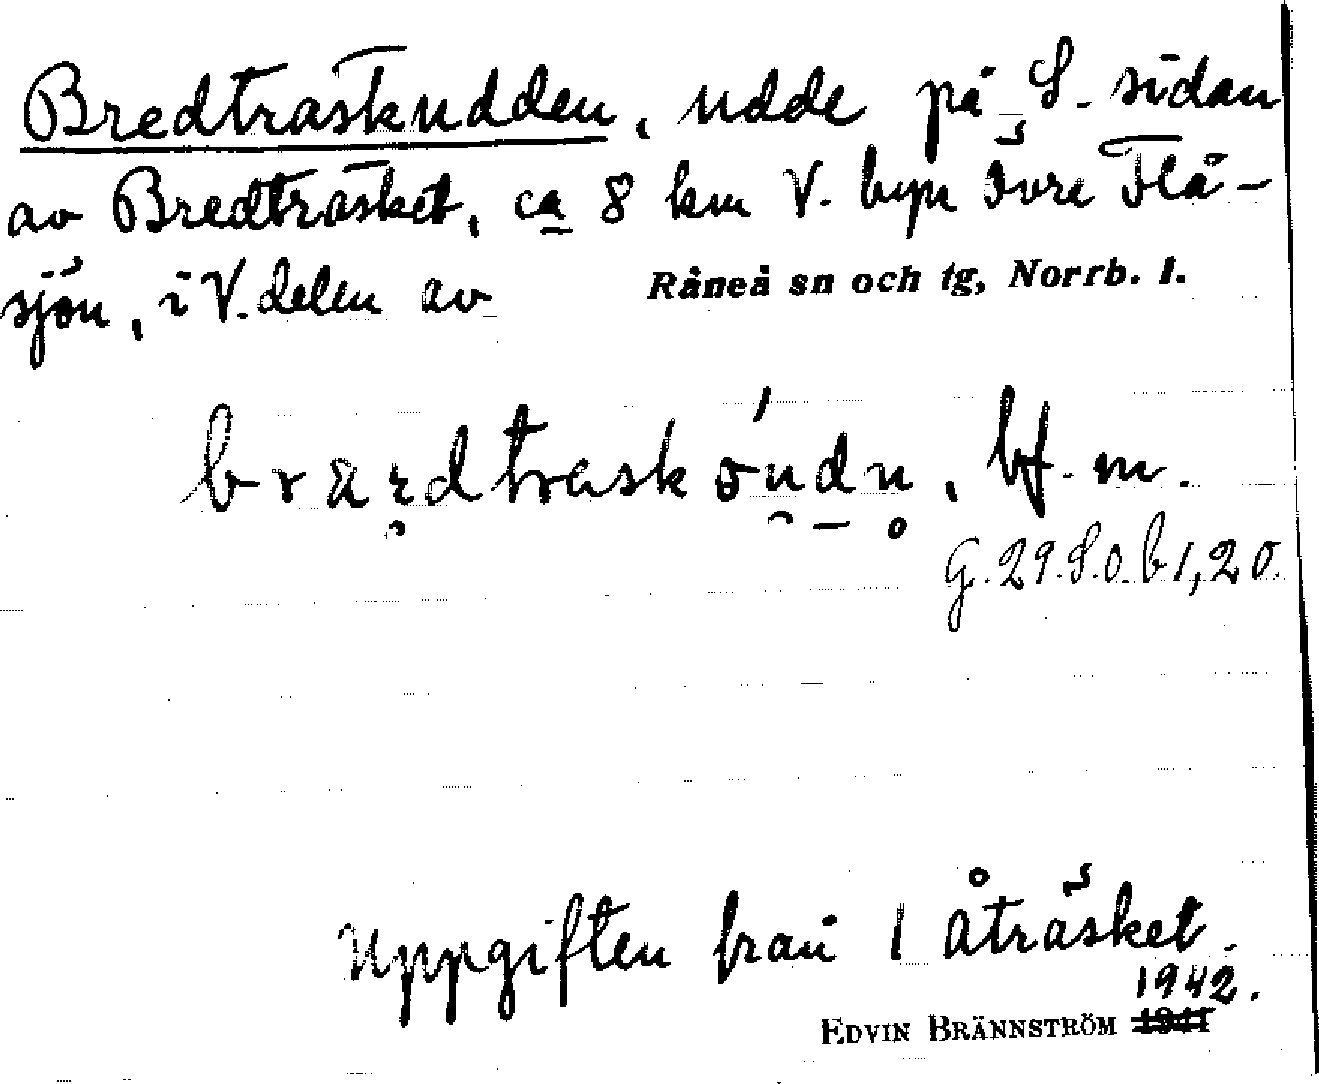 Bredträskudden, udde på S. sidan
av Bredträsket, ca 8 km V. byn Övre Flå-
sjön, i V. delen av Råneå sn och tg, Norrb. l.
bf. m.
G. 29. S. o. b 1, 20.
Uppgiften från 1 Åträsket.
1942.
EDVIN BRÄNNSTRÖM 1941